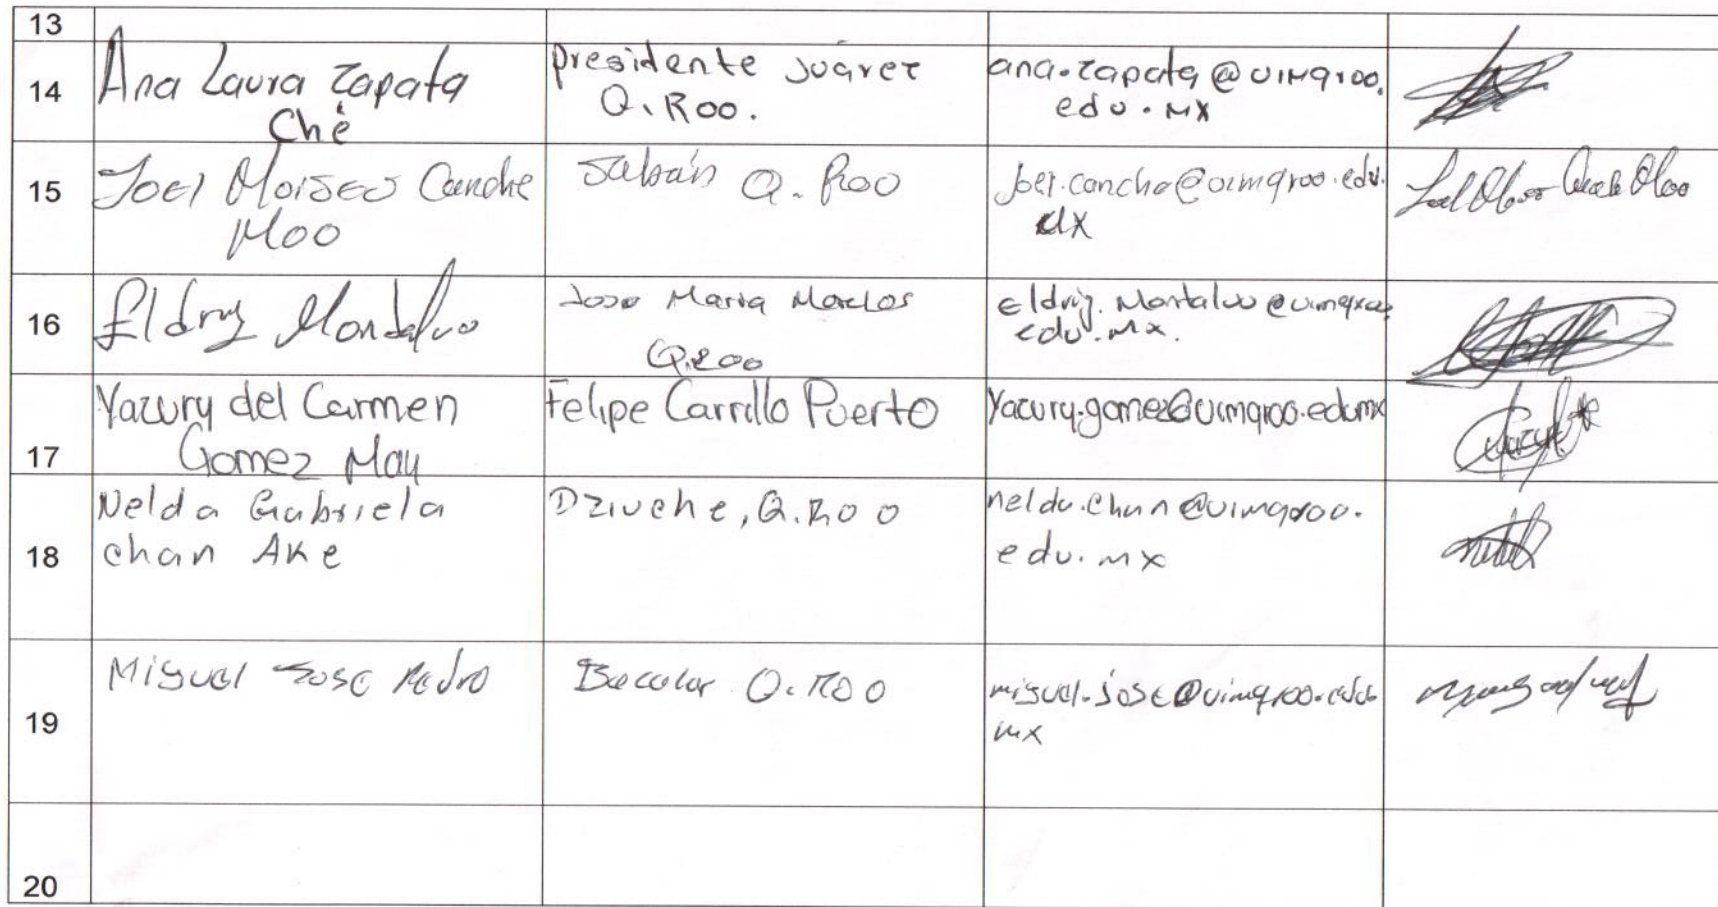 13
14 Ana Laura Zapata Ché presidente Juárez Q. Roo. ana.zapata@uimqroo.edu.mx
15 Joel Moises Canche Moo Sabán Q. Roo joel.canche@uimqroo.edu.mx
16 Eldriz Montalvo Jose Maria Morelos Q.Roo eldriz.Montalvo@uimqroo.edu.mx.
17 Yazury del Carmen Gomez May Felipe Carrillo Puerto Yazury.gomez@uimqroo.edu.mx
18 Nelda Gabriela chan Ake Dziuche, Q.Roo nelda.chan@uimqroo.edu.mx
19 Miguel Jose Pedro Bacalar Q. Roo miguel.jose@uimqroo.edu.mx
20